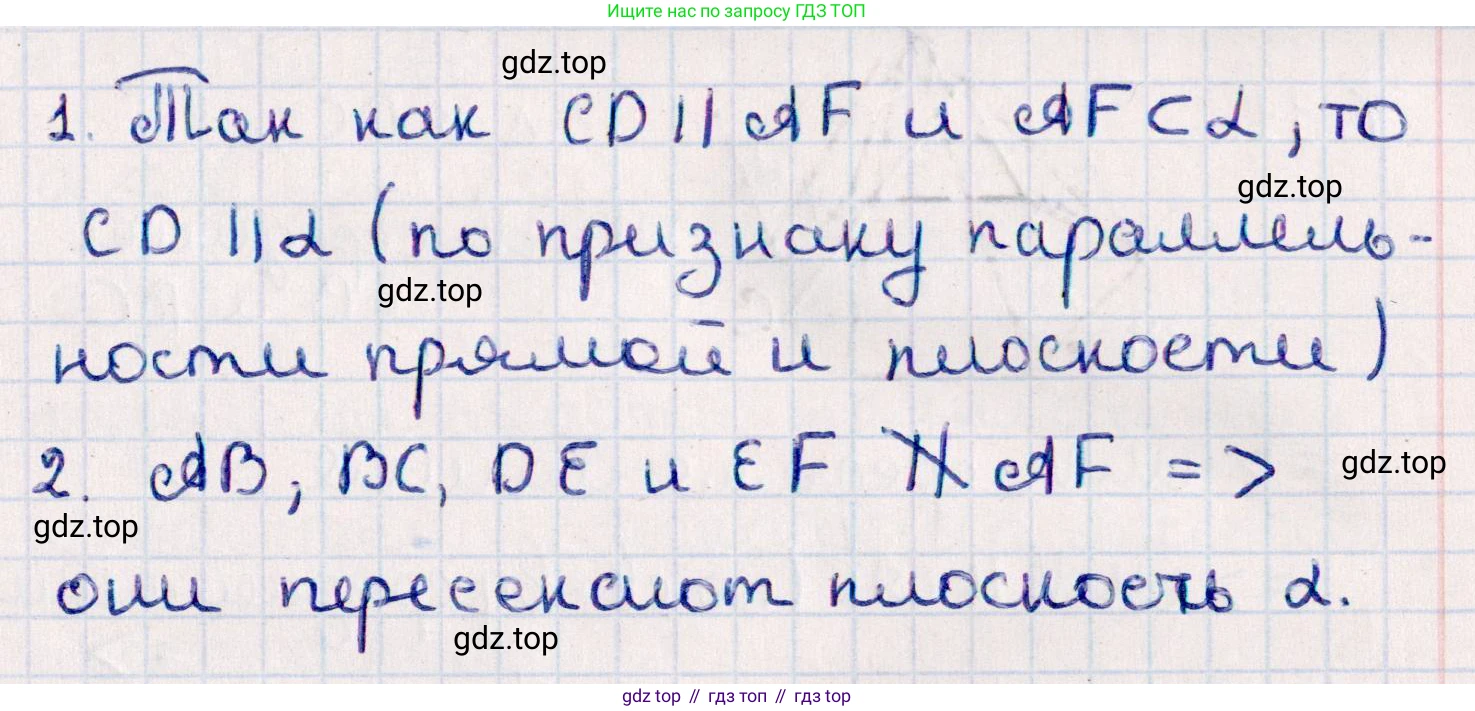 Ищите нас по запросу ГДЗ ТОП
gdz.top
1. Так как CD || AF и AF ⊂ α, то
gdz.top
CD || α (по признаку параллель-
gdz.top
ности прямой и плоскости)
2. AB, BC, DE и EF ∦ AF =>
gdz.top
gdz.top
они пересекают плоскость α.
gdz.top
gdz top // гдз топ // гдз top